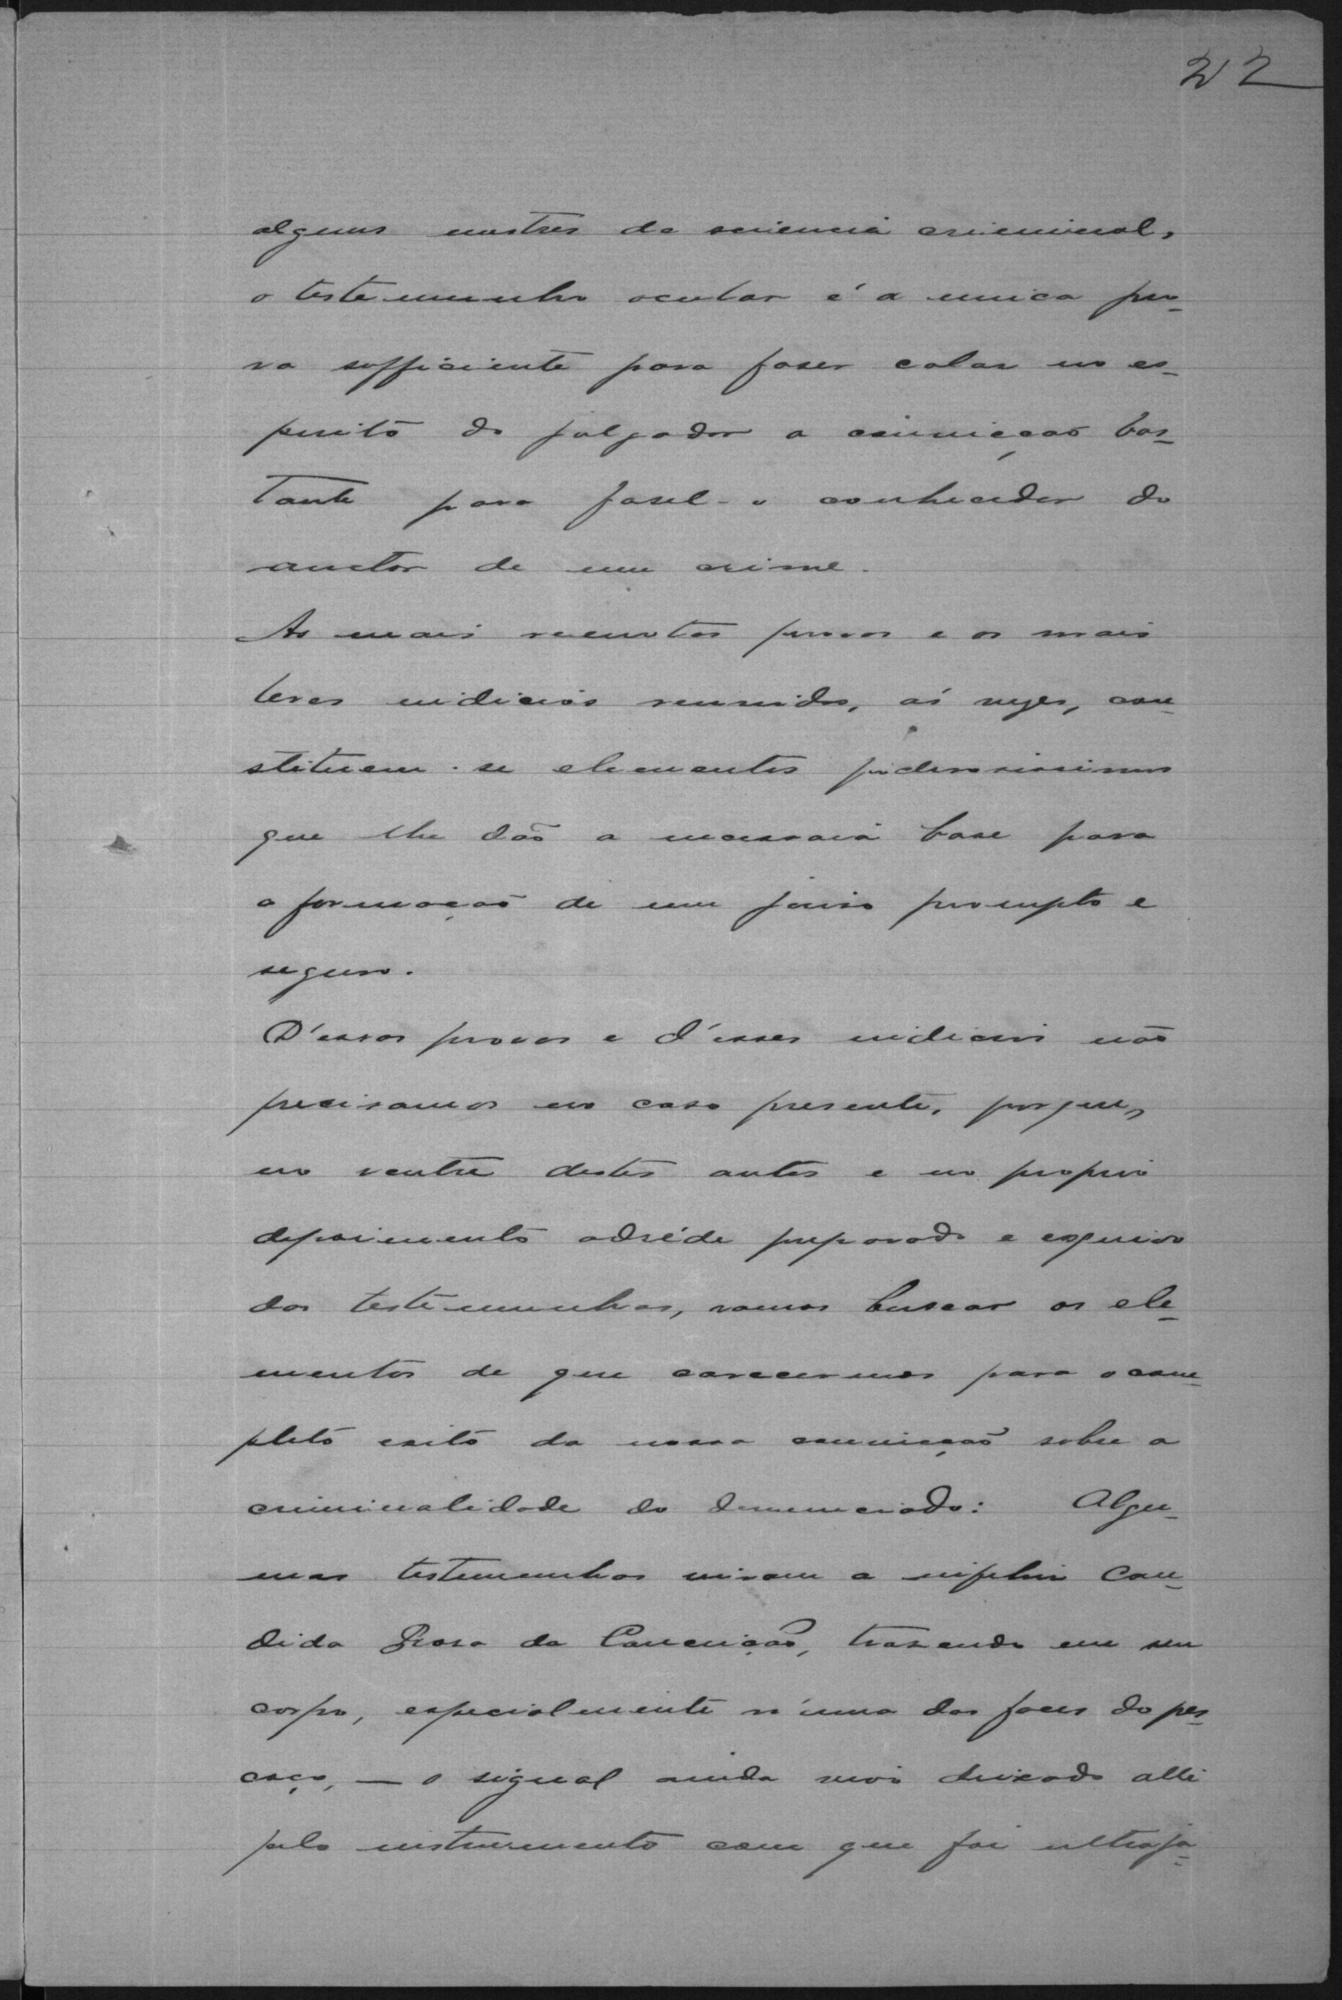 22
alguns mestres da sciencia criminal,
o testemunho ocular é a unica pro-
va sufficiente para faser calar no es-
pirito do julgador a convicção bas-
tante para fasel-o conhecedor do
auctor de um crime.
As mais remotas provas e os mais
leves indicios reunidos, ás vezes, con-
stituem-se elementos poderosissimos
que lhe dão a necessaria base para
a formação de um juiso prompto e
seguro.
D'essas provas e d'esses indicios não
precisamos no caso presente, porque,
no ventre destes autos e no proprio
depoimento adréde preparado e exquisito
das testemunhas, vamos buscar os ele-
mentos de que carecermos para o com-
pleto exito da nossa convicção sobre a
criminalidade do denunciado: Algu-
mas testemunhas viram a infeliz Can-
dida Rosa da Conceição, trasendo em seu
corpo, especialmente n'uma das faces do pes-
coço, — o signal ainda vivo deixado alli
pelo instrumento com que foi ultraja-